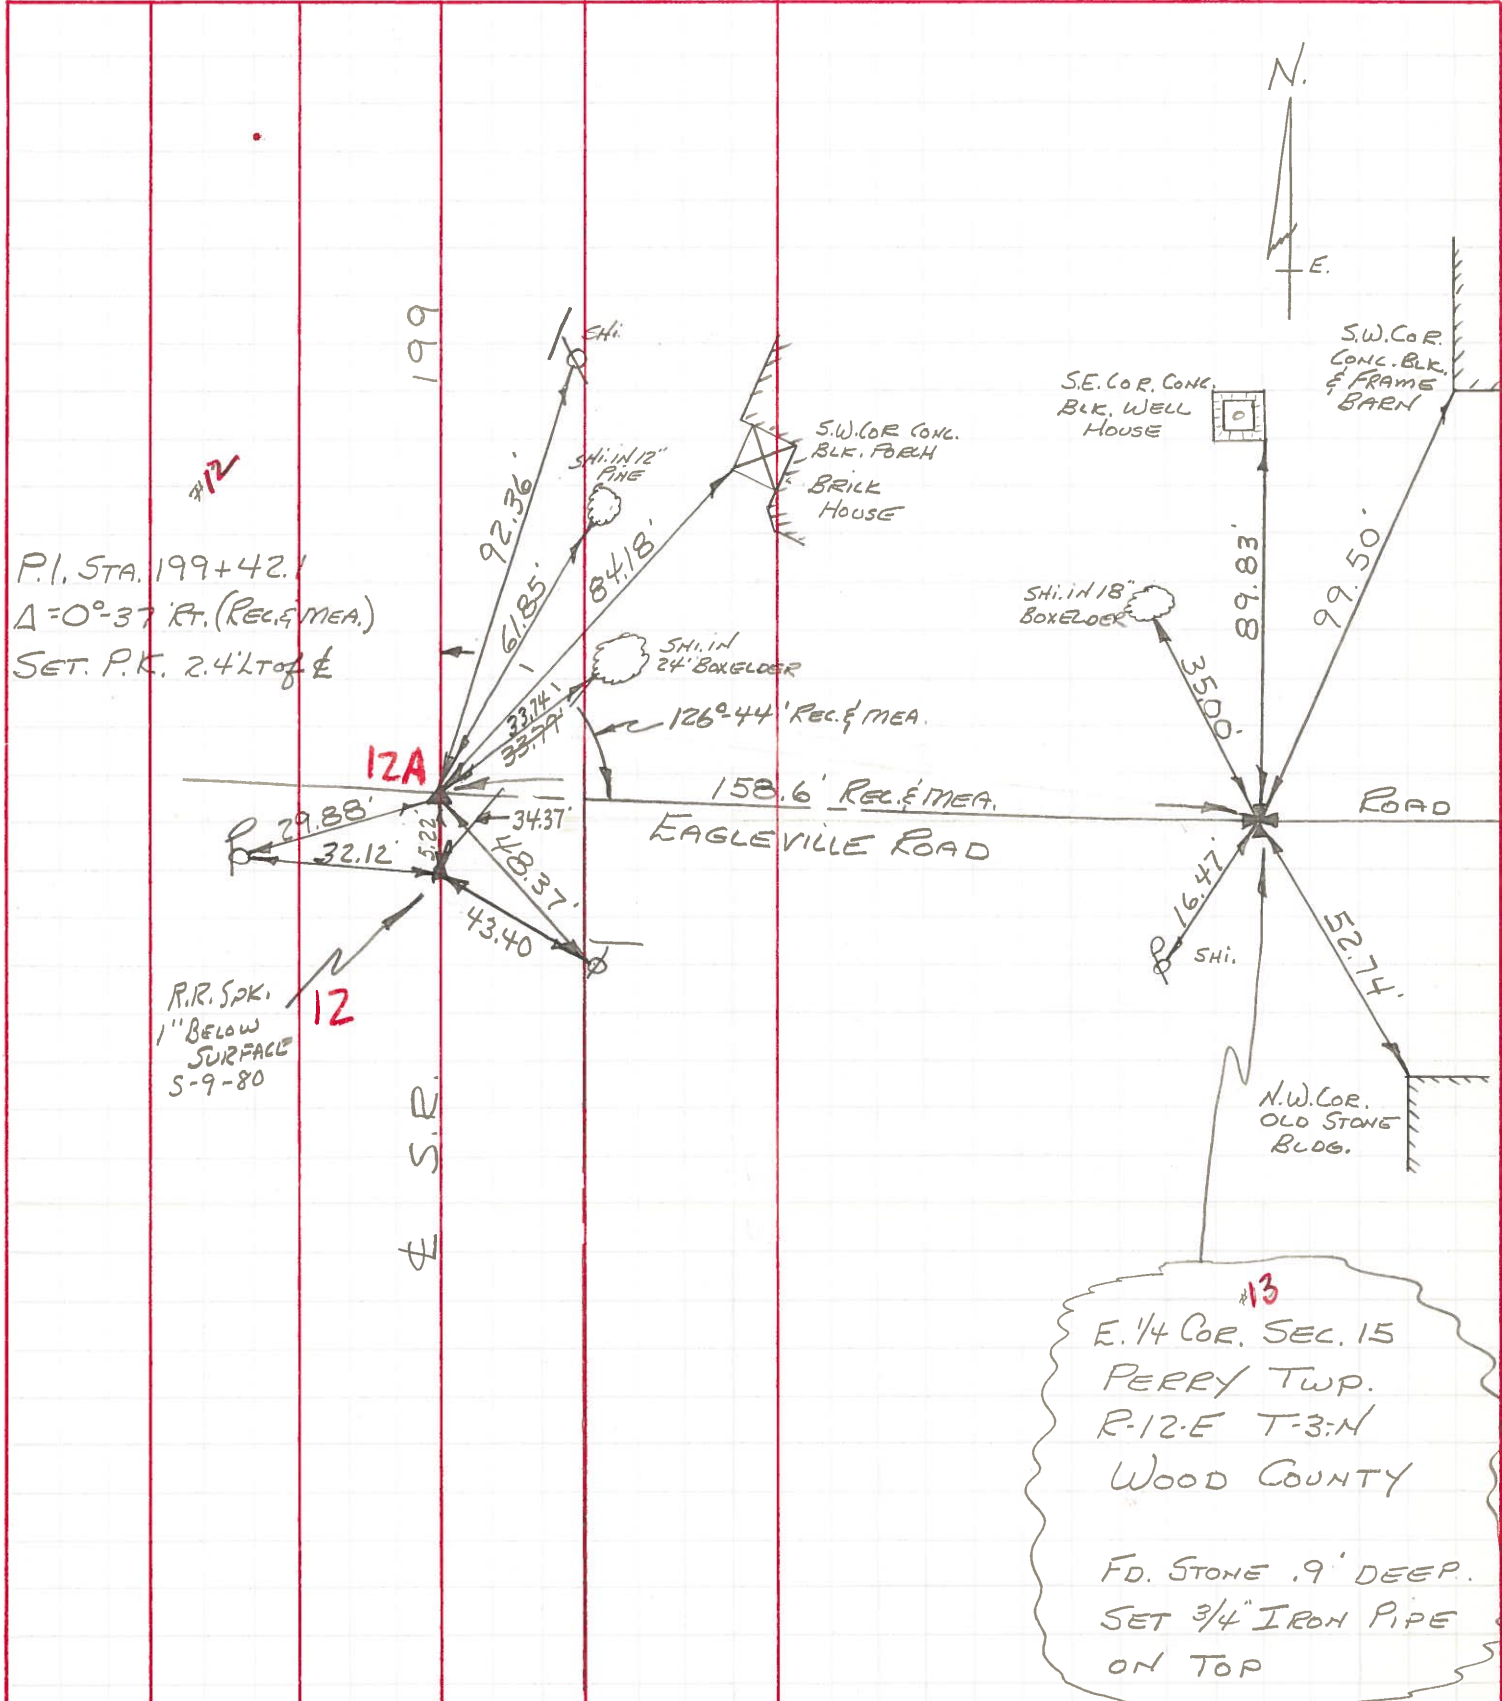 N.
E.
199
SHI.
S.W. COR.
CONC. BLK.
& FRAME
BARN
S.E. COR. CONC.
BLK. WELL
HOUSE
S.W. COR CONC.
BLK. PORCH
BRICK
HOUSE
SHI. IN 12"
PINE
#12
92.36'
61.85'
84.18'
89.83'
99.50'
P.I. STA. 199+42.1
Δ=0°-37' RT. (REC. & MEA.)
SET. P.K. 2.4' LT of ℄
SHI. IN 18"
BOXELDER
35.00'
SHI. IN
24" BOXELDER
33.74'
33.79'
126°-44' REC. & MEA.
12A
158.6' REC. & MEA.
EAGLEVILLE ROAD
ROAD
29.88'
32.12'
5.22'
34.37'
48.37'
43.40
16.47'
SHI.
52.74'
R.R. SPK.
1" BELOW
SURFACE
5-9-80
12
℄ S.R.
N.W. COR.
OLD STONE
BLDG.
#13
E. 1/4 COR. SEC. 15
PERRY TWP.
R-12-E T-3-N
WOOD COUNTY
FD. STONE .9' DEEP.
SET 3/4" IRON PIPE
ON TOP